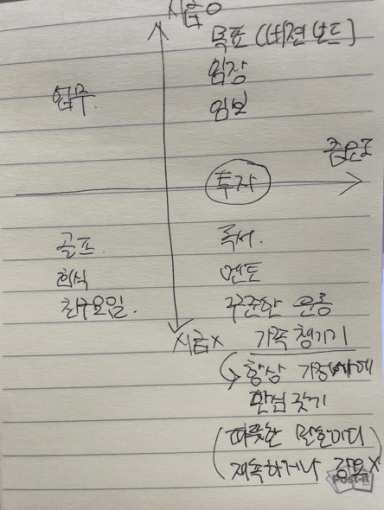 시급○
목표 (비젼 보드)
임장
업무.
임보
중요도
투자
골프.
독서.
회식
멘토
친구모임.
꾸준한 운동
시급X
가족 챙기기
↳ 항상 가정사에
관심 갖기
(따뜻한 말한마디
재촉하거나 강요X
Post-it